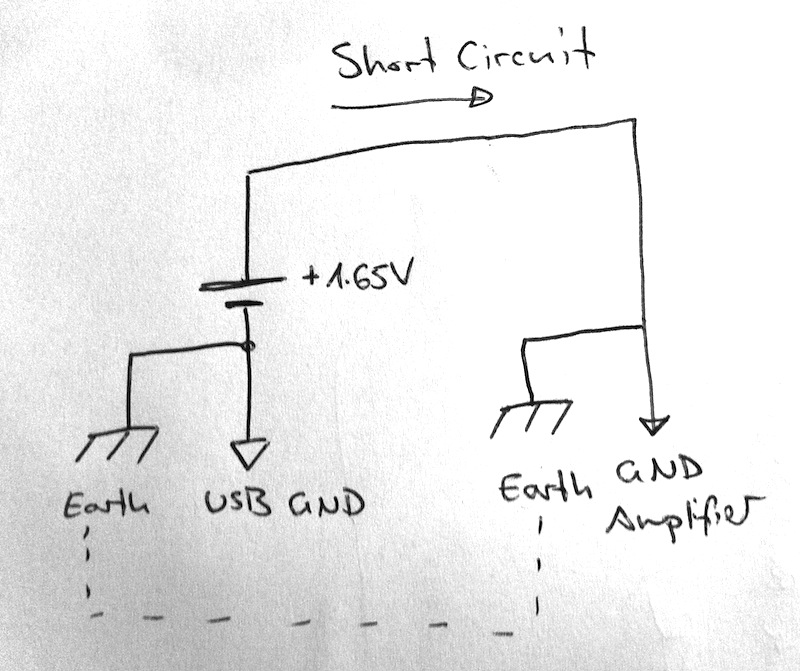 Short Circuit
+1.65V
Earth
USB GND
Earth
GND
Amplifier